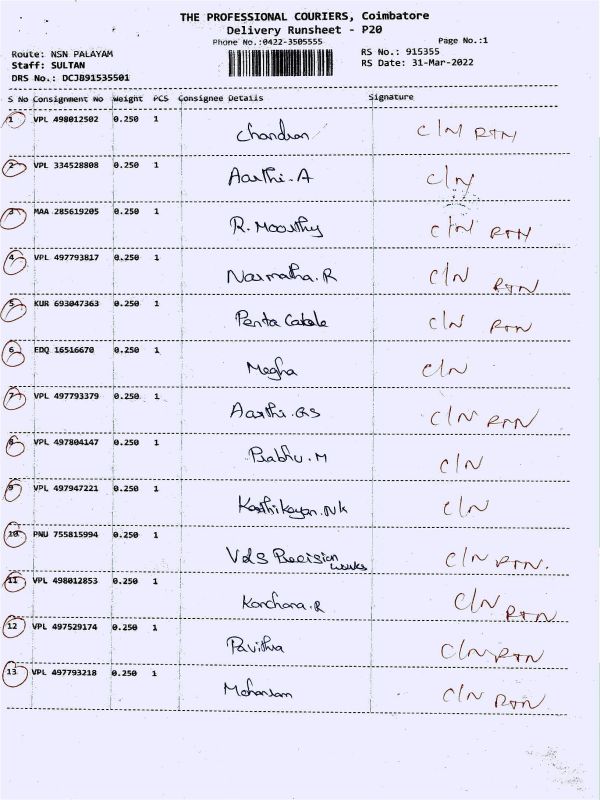 THE PROFESSIONAL COURIERS, Coimbatore
Delivery Runsheet - P20
Phone No.:0422-3505555 Page No.:1
Route: NSN PALAYAM RS No.: 915355
Staff: SULTAN RS Date: 31-Mar-2022
DRS No.: DCJB91535501
S No Consignment No Weight PCS Consignee Details Signature
1 VPL 498012502 0.250 1
Chandran C/N RTN
2 VPL 334528808 0.250 1
Aarthi.A C/N
3 MAA 285619205 0.250 1
R. Moorthy C/N RTN
4 VPL 497793817 0.250 1
Narmatha.R C/N RTN
5 KUR 693047363 0.250 1
Penta Cable C/N RTN
6 EDQ 16516670 0.250 1
Megha C/N
7 VPL 497793379 0.250 1
Aarthi.GS C/N RTN
8 VPL 497804147 0.250 1
Prabhu.M C/N
9 VPL 497947221 0.250 1
Karthikeyan.NK C/N
10 PNU 755815994 0.250 1
VDS Precision works C/N RTN.
11 VPL 498012853 0.250 1
Kanchana.R C/N RTN
12 VPL 497529174 0.250 1
Pavithra C/N RTN
13 VPL 497793218 0.250 1
C/N RTN